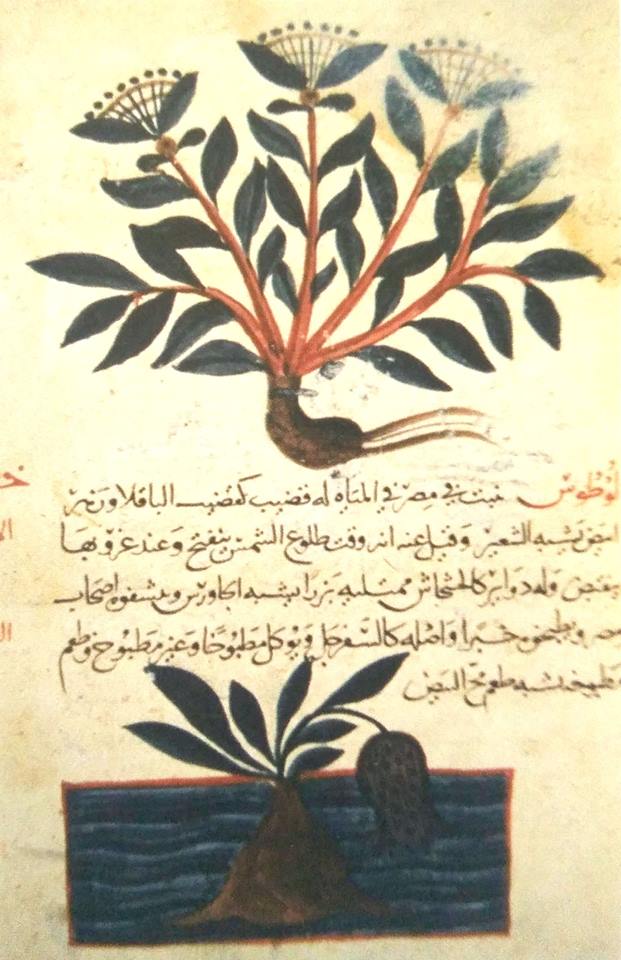 لوطوس ينبت في مصر في المياه له قضيب كقضيب الباقلا وزهر
ابيض يشبه الشعير وقيل عنه انه وقت طلوع الشمس ينفتح وعند غروبها
ينقبض وله دواير كالخشخاش ممتليه بزرا يشبه الجاورس اصحاب
مصر ويطبخوه خبزا واصله كالسفرجل ويوكل مطبوخا وغير مطبوخ وطعم
طبيخه يشبه طعم مح البيض